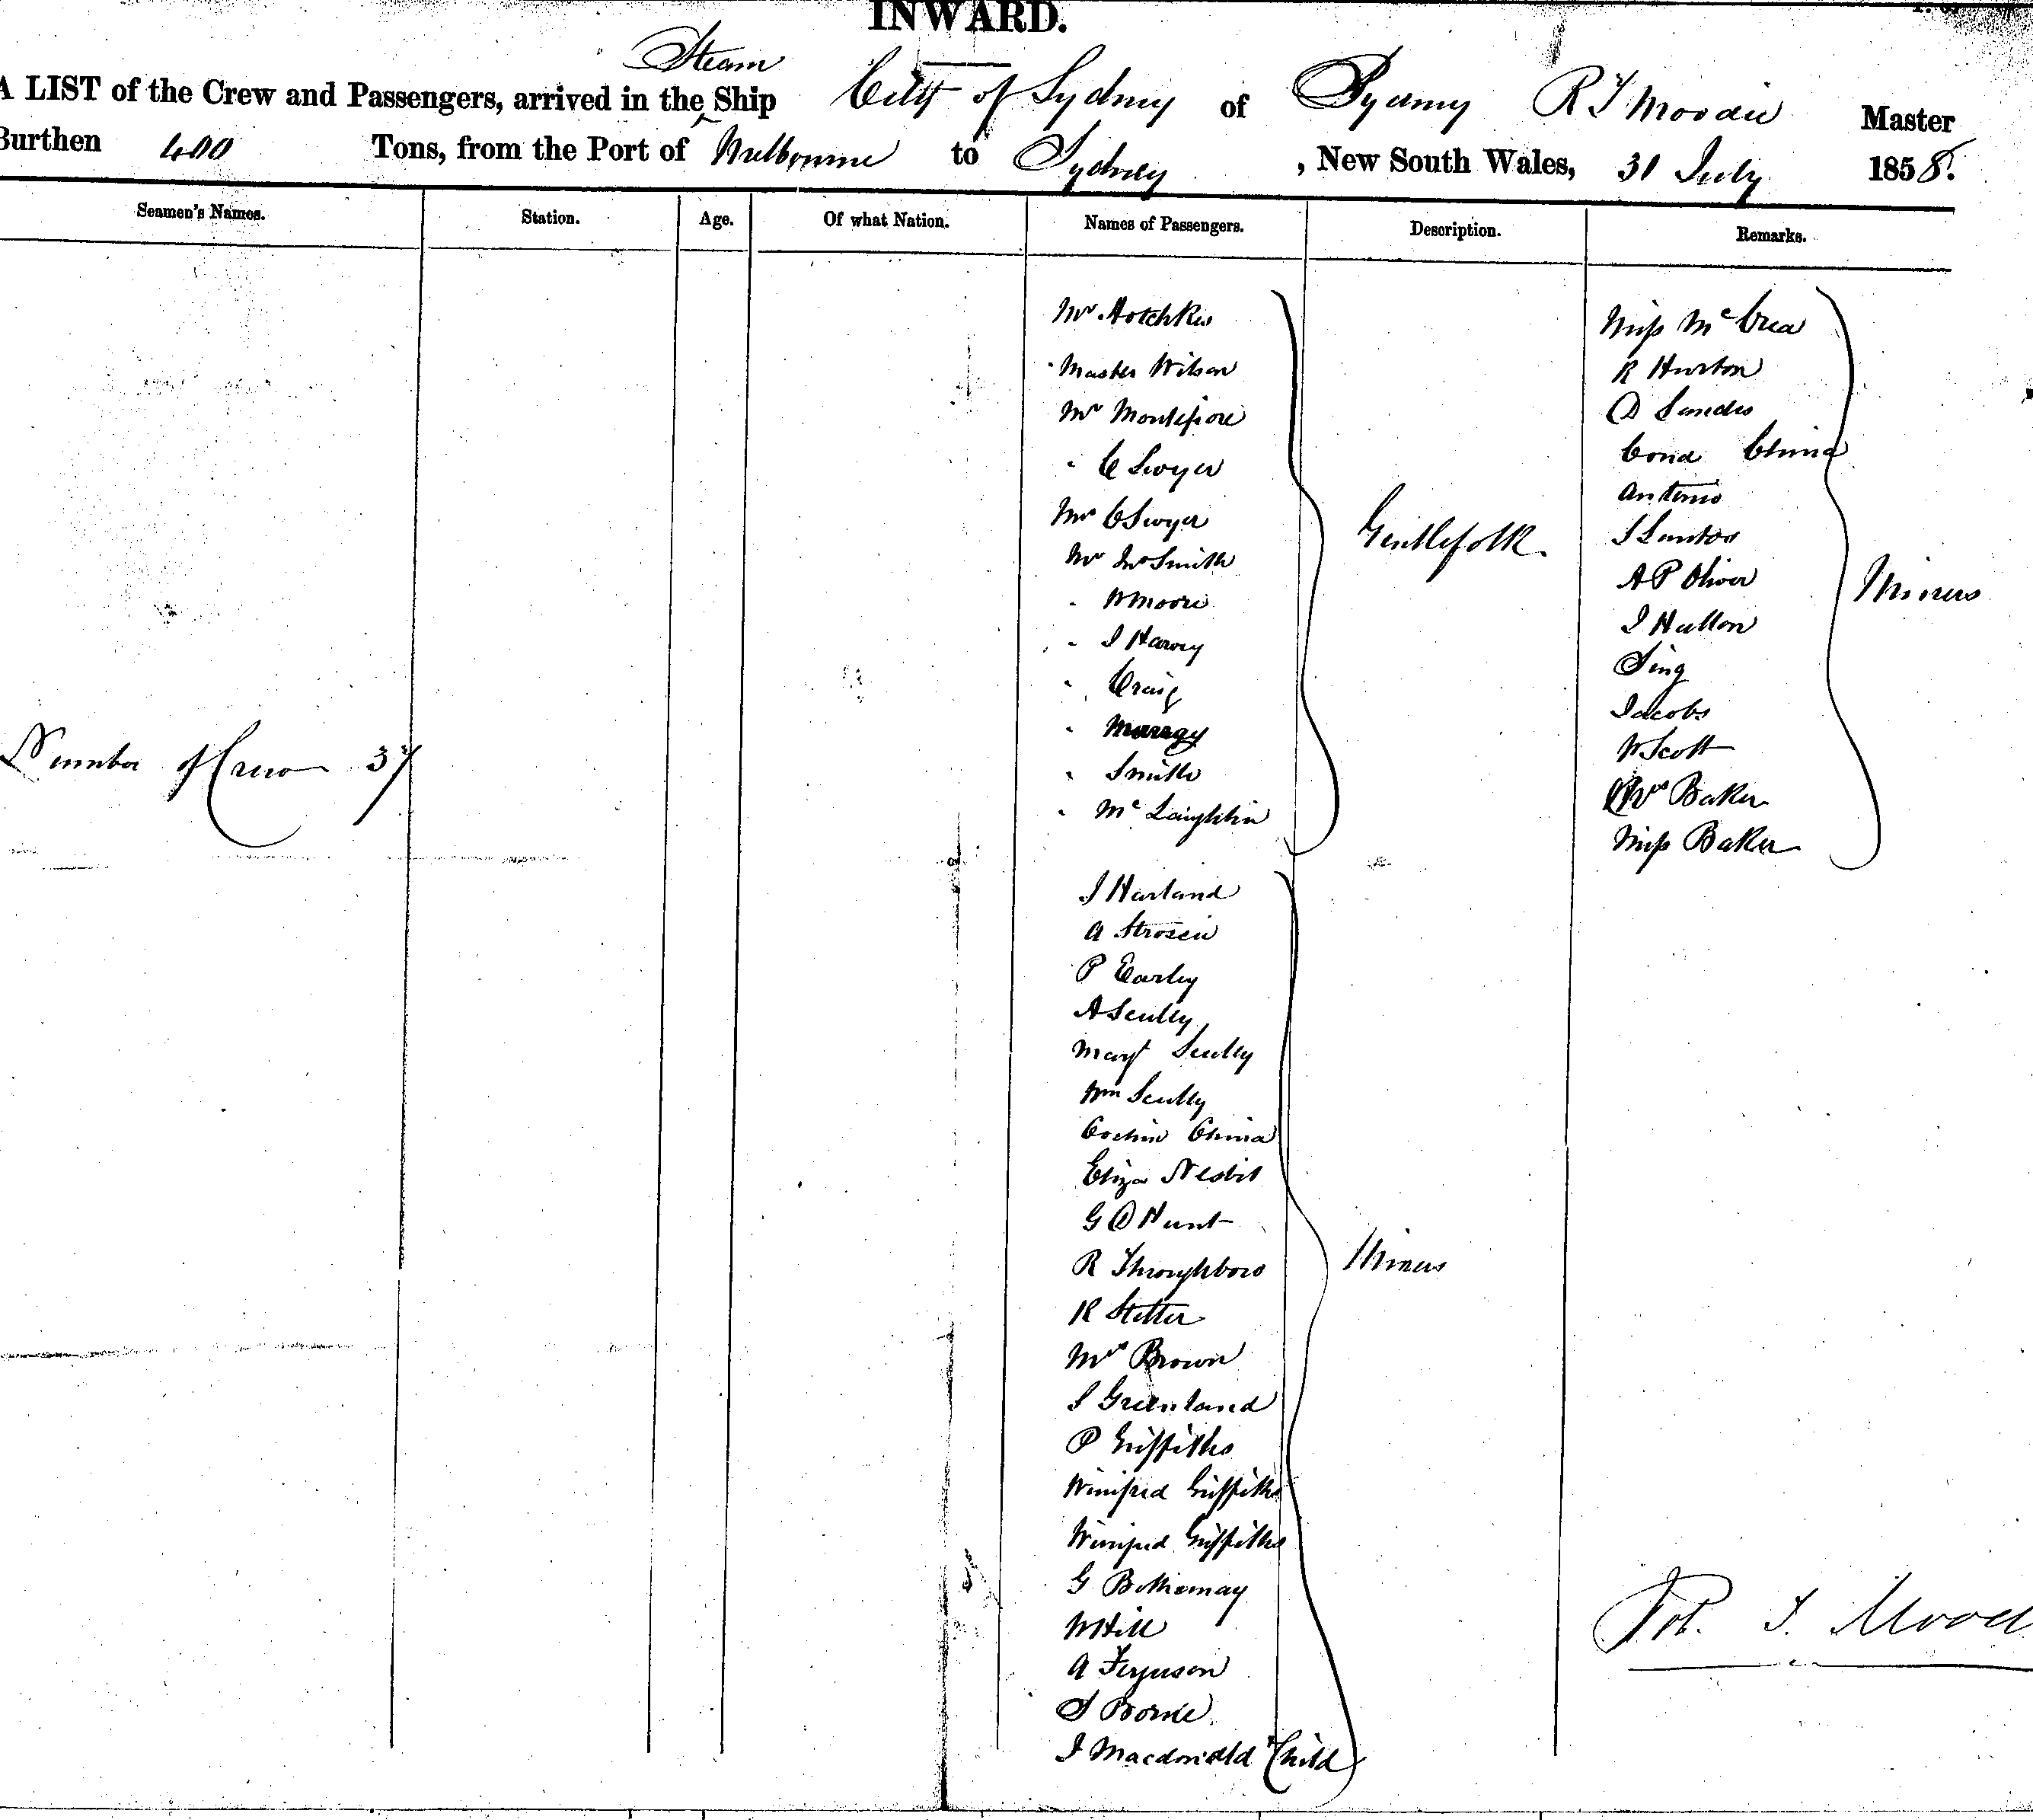 INWARD.
Steam
A LIST of the Crew and Passengers, arrived in the Ship City of Sydney of Sydney R T Moodie Master
Burthen 400 Tons, from the Port of Melbourne to Sydney, New South Wales, 31 July 1858.
Seamen's Names. Station. Age. Of what Nation. Names of Passengers. Description. Remarks.
Number of Crew 37
Mr Hotchkis
Master Wilson
Mr Montefiore
" C Swyer
Mrs C Swyer
Mr Jno Smith
" W Moore
" J Harvey
" Craig
" Murray
" Smith
" Mc Laughlin
Gentlefolk.
J Harland
A
P Earley
A Scully
Margt Scully
Wm Scully
Cochin China
Eliza Nesbit
G D Hunt
R Throughboro
R Stetter
Mrs Brown
J Greenland
P Griffiths
Winifred Griffiths
Winifred Griffiths
G
W Hill
A Ferguson
J
J Macdonald & Child
Miners
Miss Mc Crea
R Hurton
D Sandes
China
Antonio
J Santos
A P Oliver
J
Sing
Jacobs
W Scott
Mrs Baker
Miss Baker
Miners
Rob. T. Mood